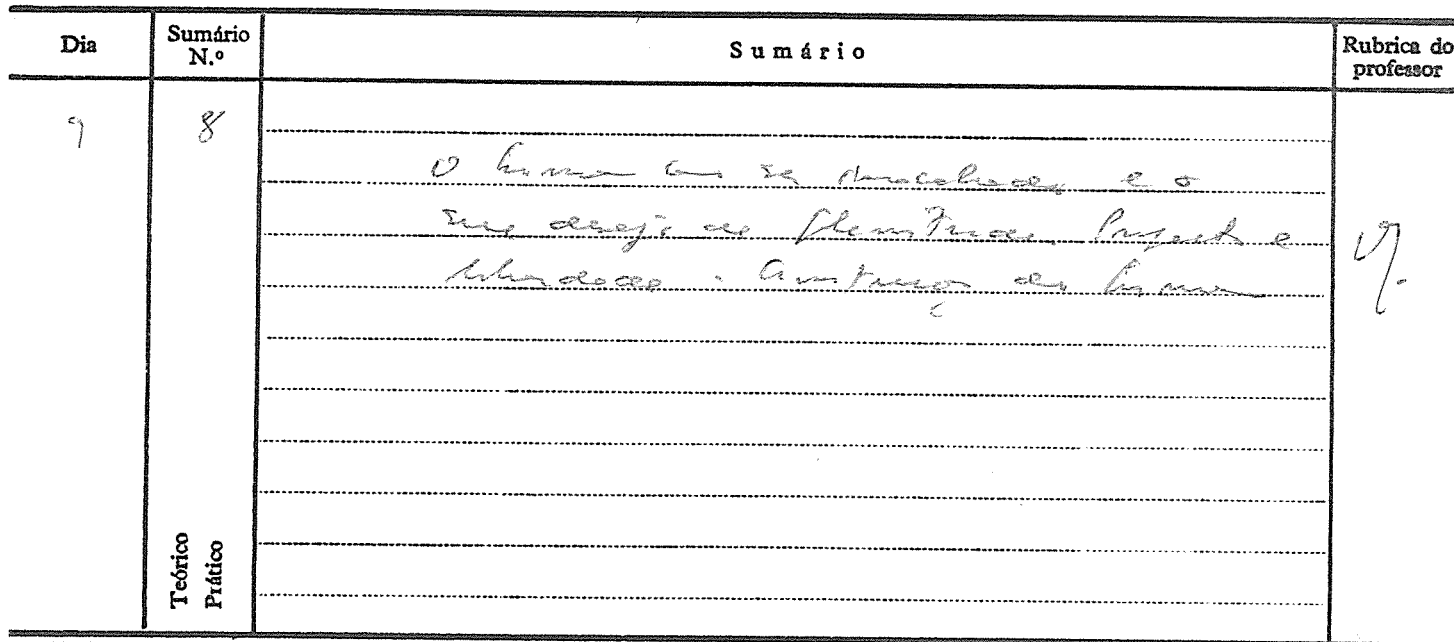 Dia
Sumário N.º
Sumário
Rubrica do professor
9
8
O homem como ser inacabado e o
seu desejo de plenitude. Projecto e
liberdade. Construção do homem
Teórico
Prático